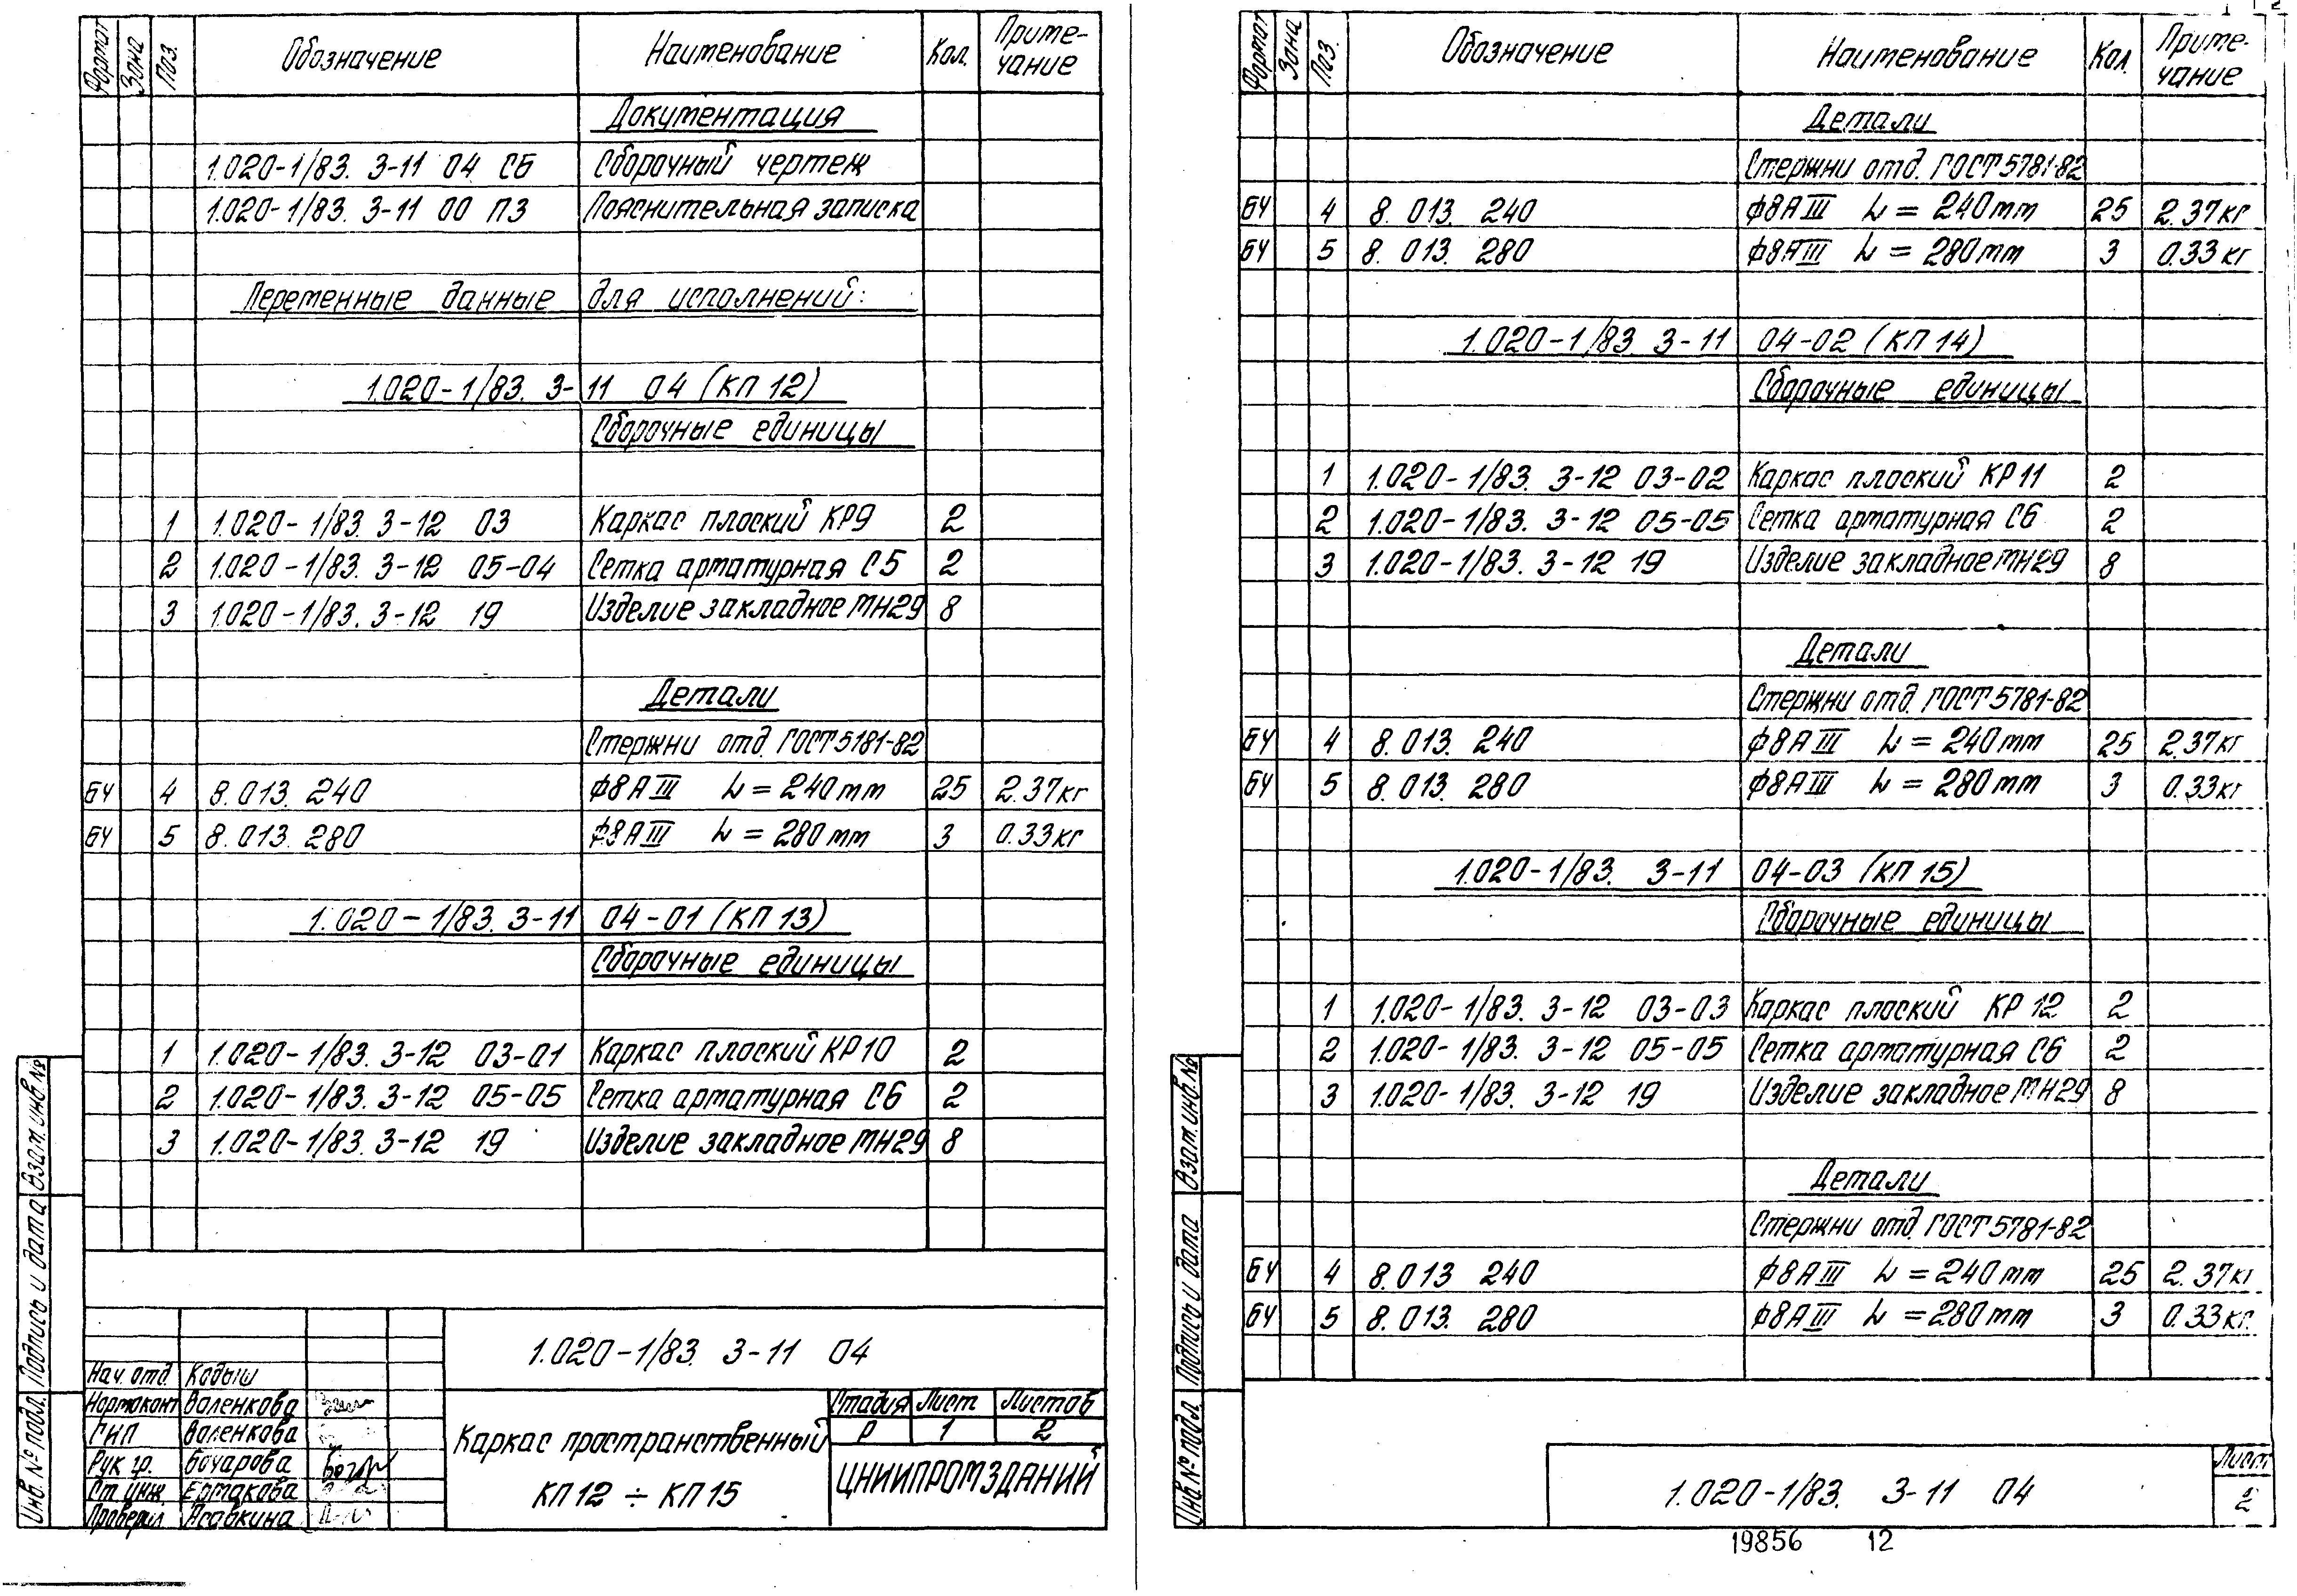 Формат Зона Поз. Обозначение Наименование Кол. Приме-
чание
Документация
1.020-1/83. 3-11 04 СБ Сборочный чертеж
1.020-1/83. 3-11 00 ПЗ Пояснительная записка
Переменные данные для исполнений:
1.020-1/83. 3-11 04 (КП 12)
Сборочные единицы
1 1.020-1/83 3-12 03 Каркас плоский КР9 2
2 1.020-1/83. 3-12 05-04 Сетка арматурная С5 2
3 1.020-1/83. 3-12 19 Изделие закладное МН29 8
Детали
Стержни отд. ГОСТ 5181-82
БЧ 4 8.013.240 ф8АIII L=240мм 25 2.37кг
БЧ 5 8.013.280 ф8АIII L=280мм 3 0.33кг
1.020-1/83. 3-11 04-01 (КП 13)
Сборочные единицы
1 1.020-1/83. 3-12 03-01 Каркас плоский КР10 2
2 1.020-1/83. 3-12 05-05 Сетка арматурная С6 2
3 1.020-1/83. 3-12 19 Изделие закладное МН29 8
Взам. инв. №
Подпись и дата
Инв. № подл.
1.020-1/83. 3-11 04
Нач. отд. Кодыш
Нормоконт Валенкова
ГИП Валенкова
Рук. гр. Бочарова
Ст. инж. Ермакова
Проверил Асавкина
Каркас пространственный
КП 12 ÷ КП 15
Стадия Лист Листов
Р 1 2
ЦНИИПРОМЗДАНИЙ
Формат Зона Поз. Обозначение Наименование Кол. Приме-
чание
Детали
Стержни отд. ГОСТ 5781-82
БЧ 4 8.013.240 ф8АIII L=240мм 25 2.37кг
БЧ 5 8.013.280 ф8АIII L=280мм 3 0.33кг
1.020-1/83 3-11 04-02 (КП 14)
Сборочные единицы
1 1.020-1/83. 3-12 03-02 Каркас плоский КР11 2
2 1.020-1/83. 3-12 05-05 Сетка арматурная С6 2
3 1.020-1/83. 3-12 19 Изделие закладное МН29 8
Детали
Стержни отд. ГОСТ 5781-82
БЧ 4 8.013.240 ф8АIII L=240мм 25 2.37кг
БЧ 5 8.013.280 ф8АIII L=280мм 3 0.33кг
1.020-1/83. 3-11 04-03 (КП 15)
Сборочные единицы
1 1.020-1/83. 3-12 03-03 Каркас плоский КР 12 2
2 1.020-1/83. 3-12 05-05 Сетка арматурная С6 2
3 1.020-1/83. 3-12 19 Изделие закладное МН29 8
Детали
Стержни отд. ГОСТ 5781-82
БЧ 4 8.013 240 ф8АIII L=240мм 25 2.37кг
БЧ 5 8.013.280 ф8АIII L=280мм 3 0.33кг.
Взам. инв. №
Подпись и дата
Инв. № подл.
1.020-1/83. 3-11 04
Лист
2
19856 12